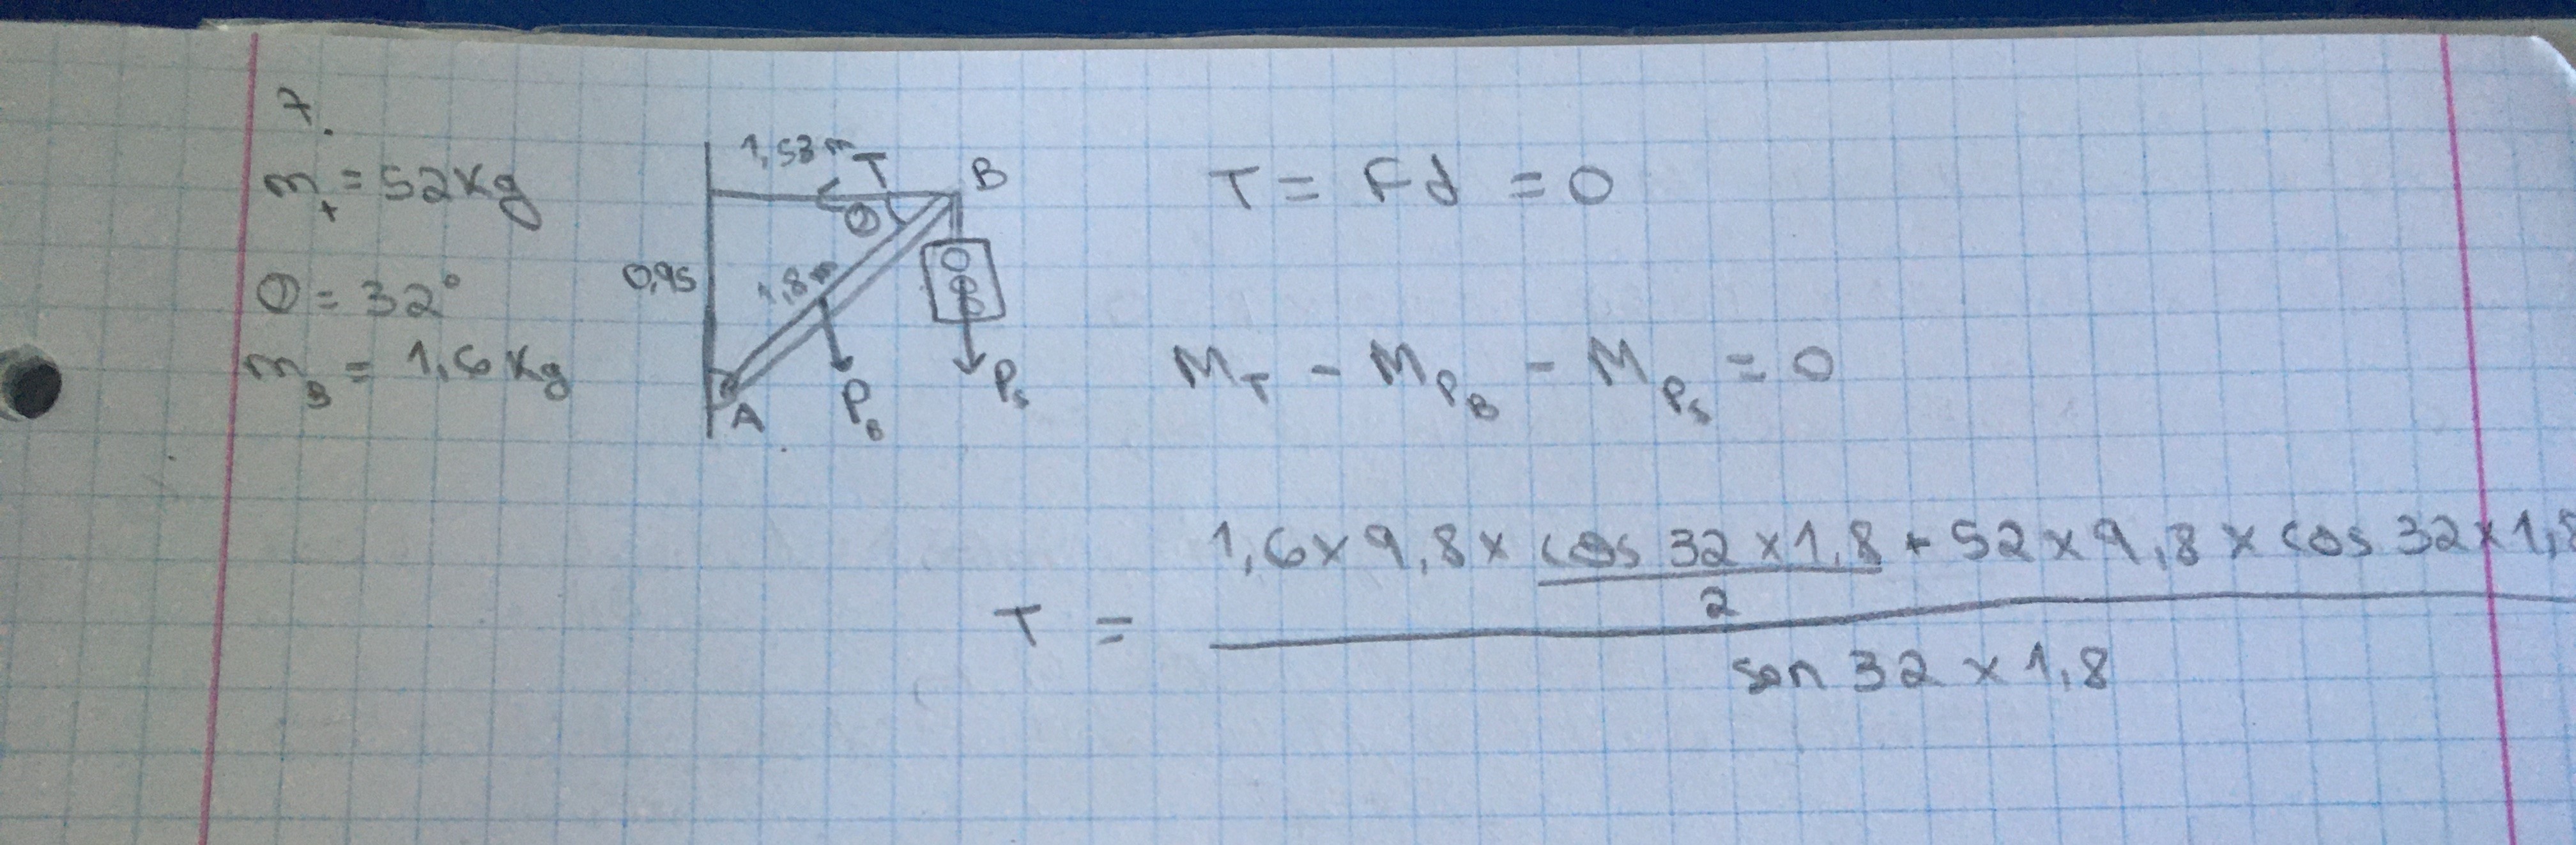 7.
m₊ = 52 kg
θ = 32°
m_B = 1,6 kg
1,53 m
T
B
θ
0,95
1,8 m
A
P_B
P_s
T = Fd = 0
M_T - M_{P_B} - M_{P_s} = 0
1,6 x 9,8 x cos 32 x 1,8 + 52 x 9,8 x cos 32 x 1,8
2
T =
sen 32 x 1,8